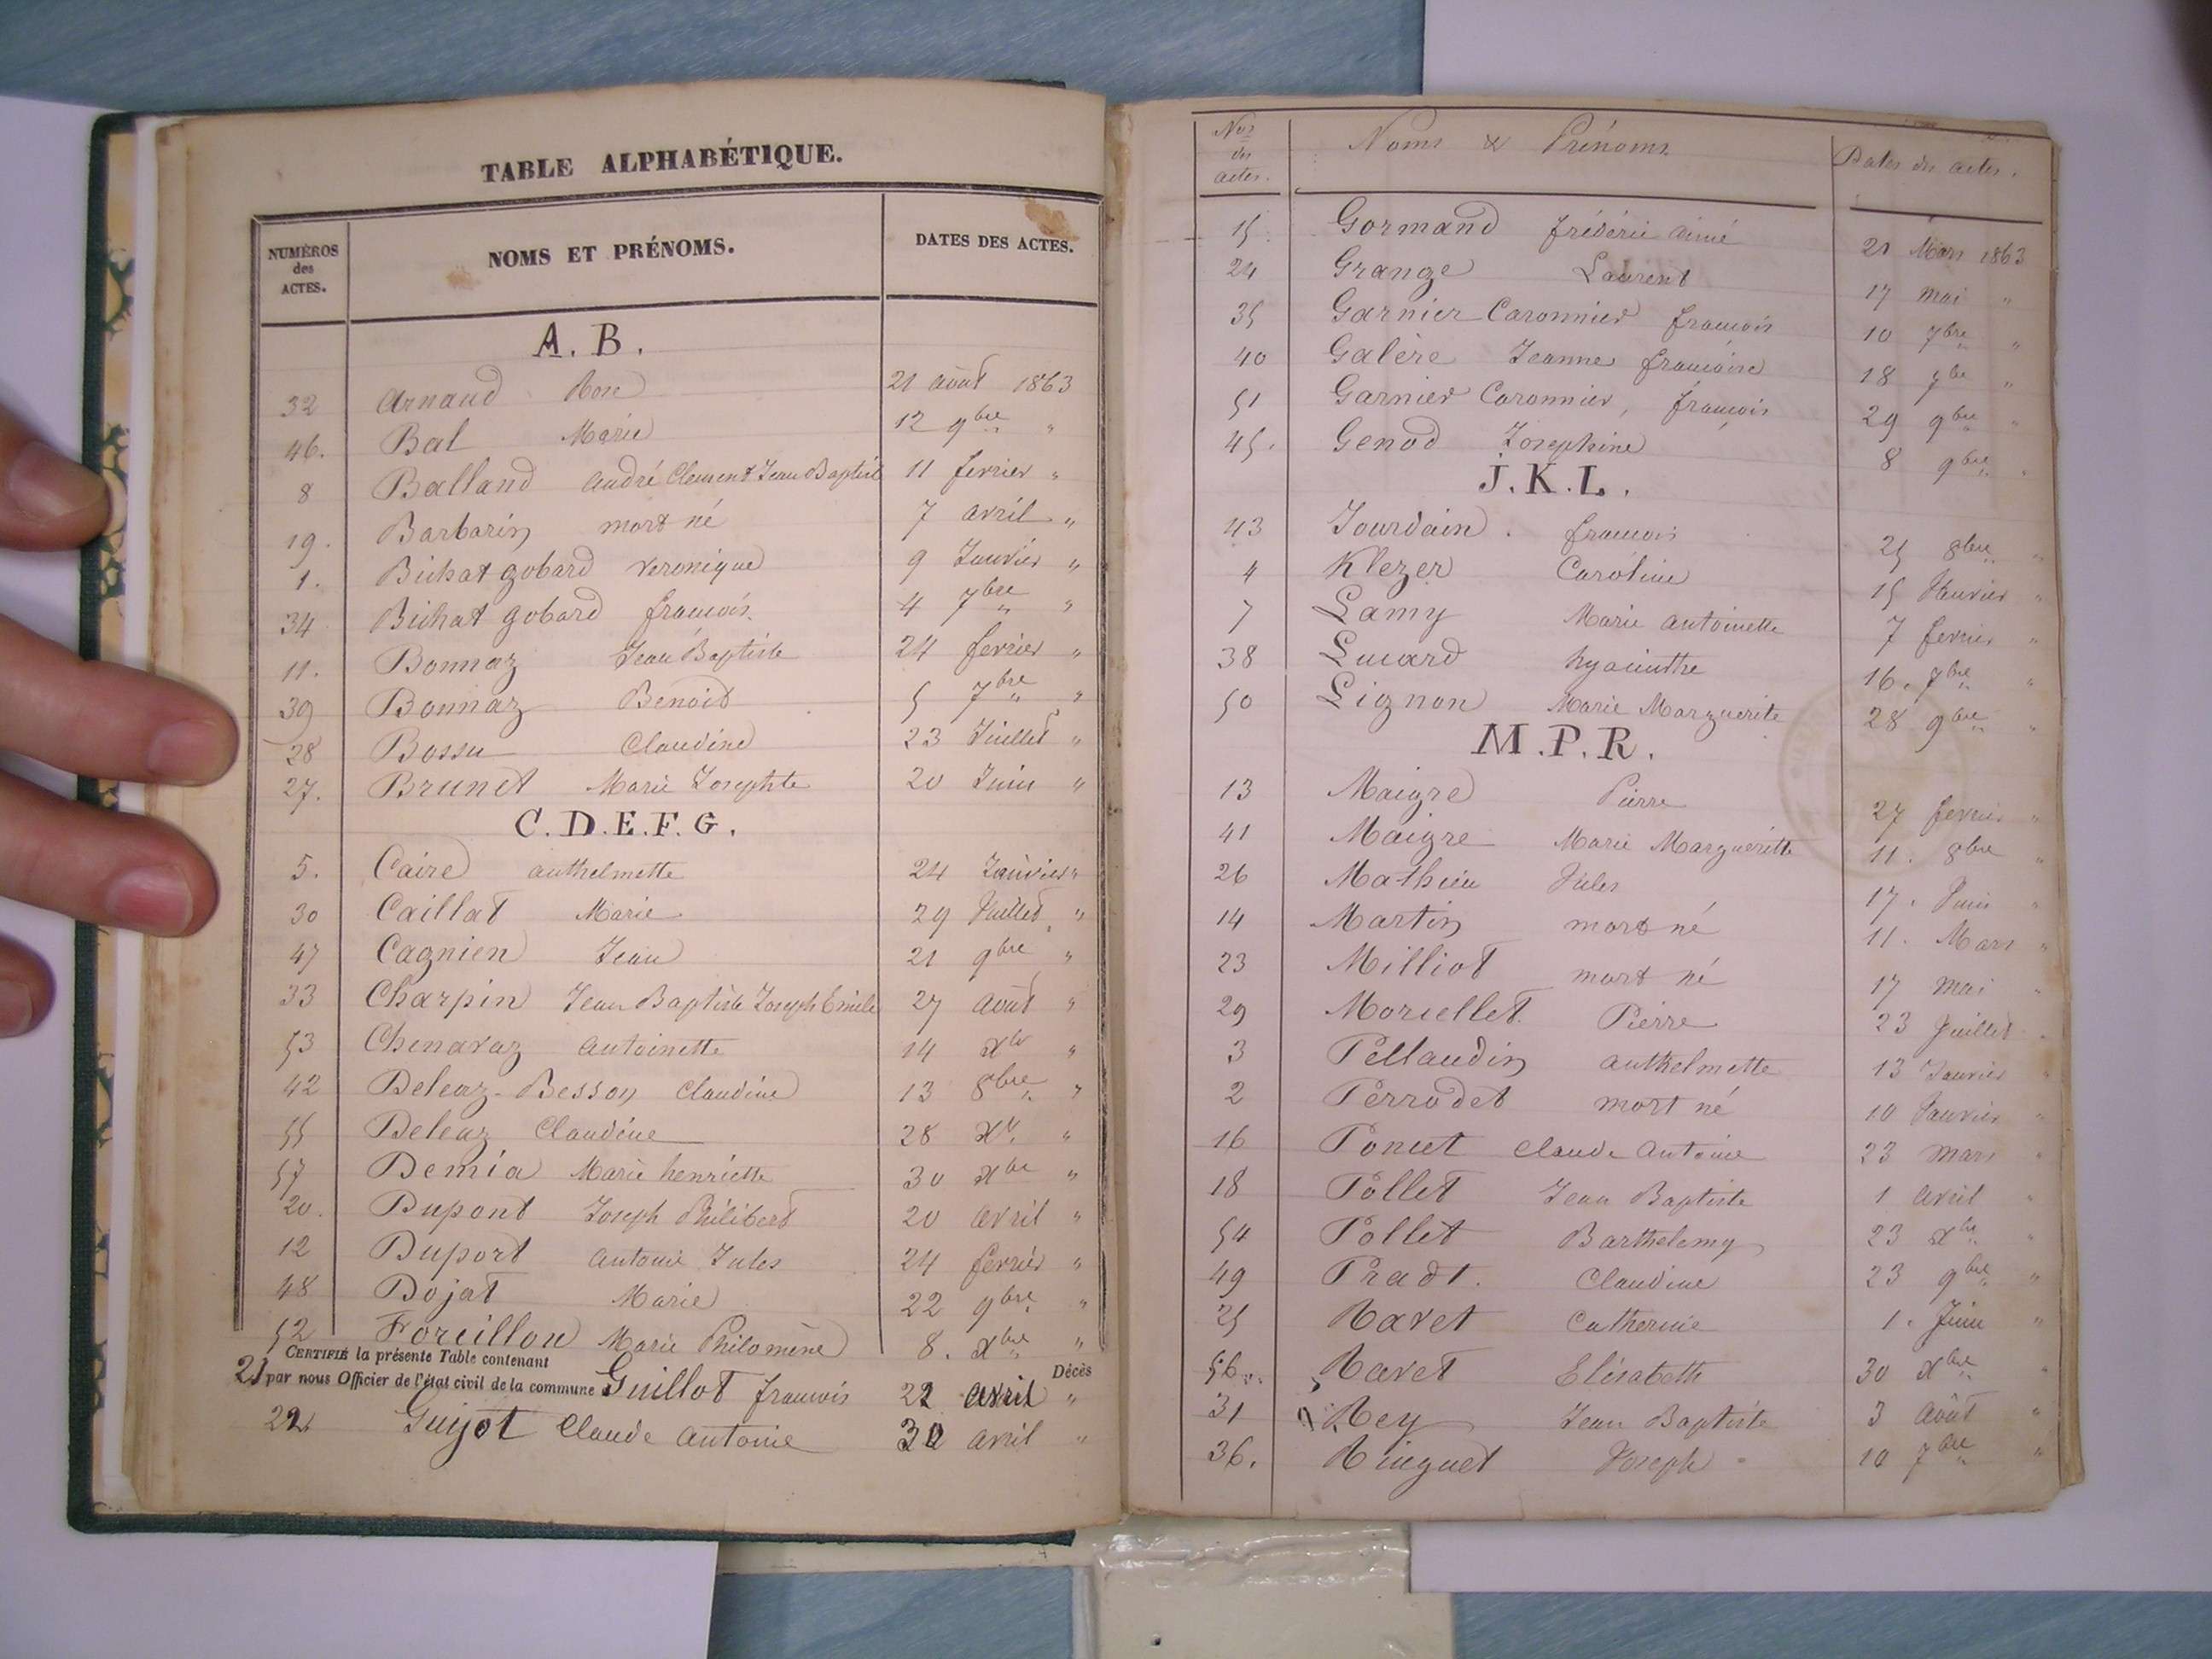 TABLE ALPHABÉTIQUE.
NUMÉROS des ACTES. NOMS ET PRÉNOMS. DATES DES ACTES.
A. B.
32 Arnaud Rose 21 août 1863
46. Bal Marie 12 9bre "
8 Balland André Clement Jean Baptiste 11 fevrier "
19. Barbarin mort né 7 avril "
1. Bichat gobard Veronique 9 Janvier "
34 Bichat gobard françois 4 7bre "
11. Bonnaz Jean Baptiste 24 fevrier "
39 Bonnaz Benoit 5 7bre "
28 Bossu Claudine 23 Juillet "
27. Brunet Marie Josephte 20 Juin "
C. D. E. F. G.
5. Caire anthelmette 24 Janvier "
30 Caillat Marie 29 Juillet "
47 Cagnien Jean 21 9bre "
33 Charpin Jean Baptiste Joseph Emile 27 août "
53 Chenavaz antoinette 14 Xbr "
42 Deleaz-Besson Claudine 13 8bre "
55 Deleaz Claudine 28 Xbr "
57 Demia Marie henriette 30 Xbre "
20. Dupont Joseph Philibert 20 avril "
12 Duport antoine Jules 24 fevrier "
48 Dojat Marie 22 9bre "
52 Foreillon Marie Philomène 8. Xbre "
CERTIFIÉ la présente Table contenant Décès
par nous Officier de l'état civil de la commune
21 Guillot françois 22 avril "
22. Guijot Claude antoine 30 avril "
Nos des actes. Noms & Prénoms Dates des actes.
15. Gormand frédéric aimé 21 Mars 1863
24 Grange Laurent 17 mai "
35 Garnier Caronnier françois 10 7bre "
40 Galère Jeanne françoise 18 7bre "
51 Garnier Caronnier, françois 29 9bre "
45. Genod Josephine 8 9bre "
J. K. L.
43 Jourdain. françois 25 8bre "
4 Klezer Caroline 15 Janvier "
7 Lamy Marie antoinette 7 fevrier "
38 Lucard hyacinthe 16. 7bre "
50 Lignon Marie Marguerite 28 9bre "
M. P. R.
13 Maigre Pierre 27 fevrier "
41 Maigre Marie Margueritte 11. 8bre "
26 Mathieu Jules 17. Juin "
14 Martin mort né 11. Mars "
23 Milliot mort né 17 mai "
29 Moriellet. Pierre 23 Juillet "
3 Pellaudin anthelmette 13 Janvier "
2 Perrodet mort né 10 Janvier "
16 Poncet Claude Antoine 23 mars "
18 Pollet Jean Baptiste 1 avril "
54 Pollet Barthelemy 23 Xbre "
49 Pradt. Claudine 23 9bre "
25 Ravet Catherine 1. Juin "
56. Ravet Elisabeth 30 Xbre "
31 Rey Jean Baptiste 3 Août "
36. Ringuet Joseph 10 7bre "